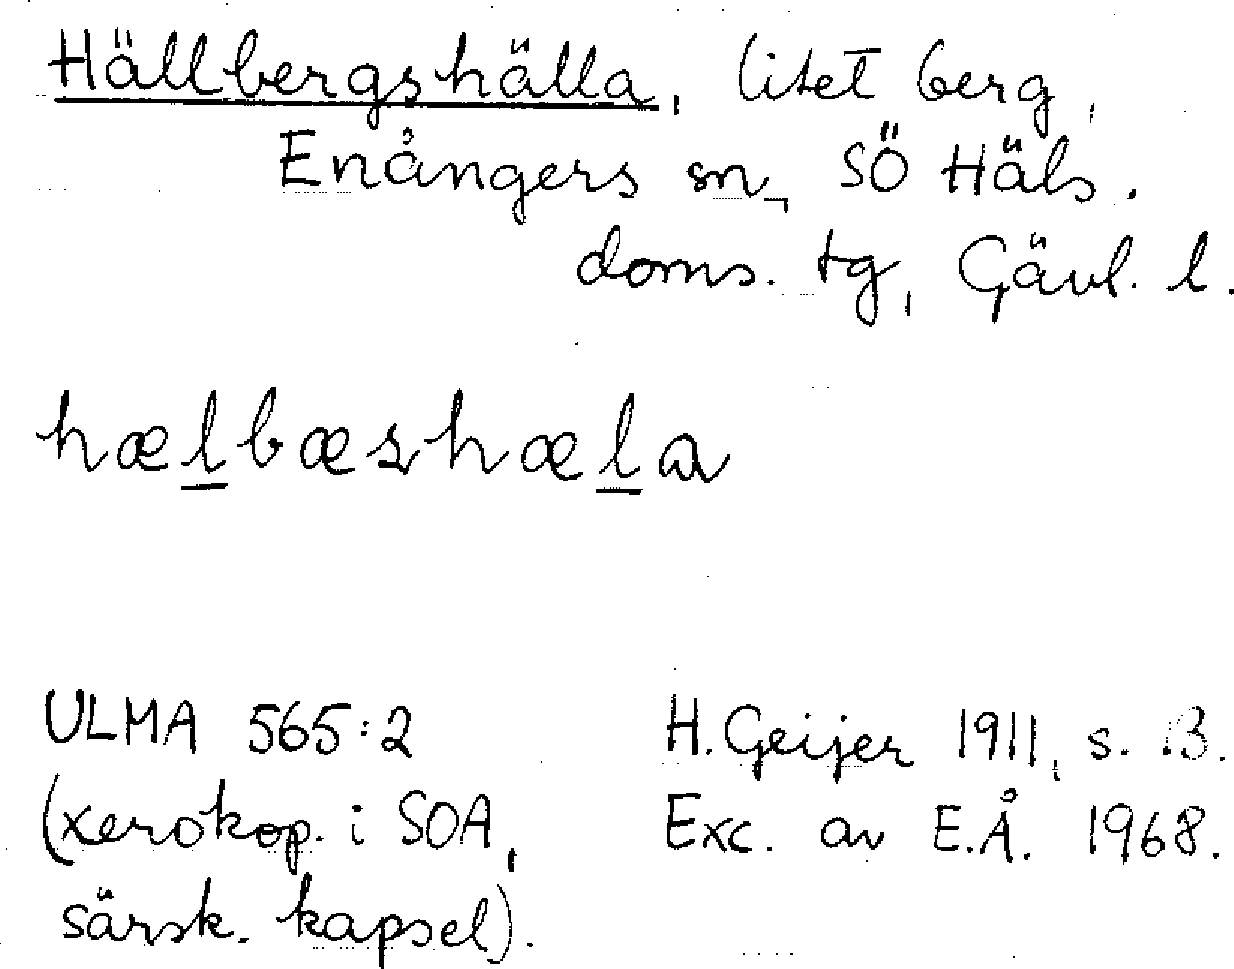 Hällbergshälla, litet berg,
Enångers sn, SÖ Häls.
doms. tg, Gävl. l.
hælbæshæla
ULMA 565:2
(xerokop. i SOA,
särsk. kapsel).
H. Geijer 1911, s. 13.
Exc. av E.Å. 1968.